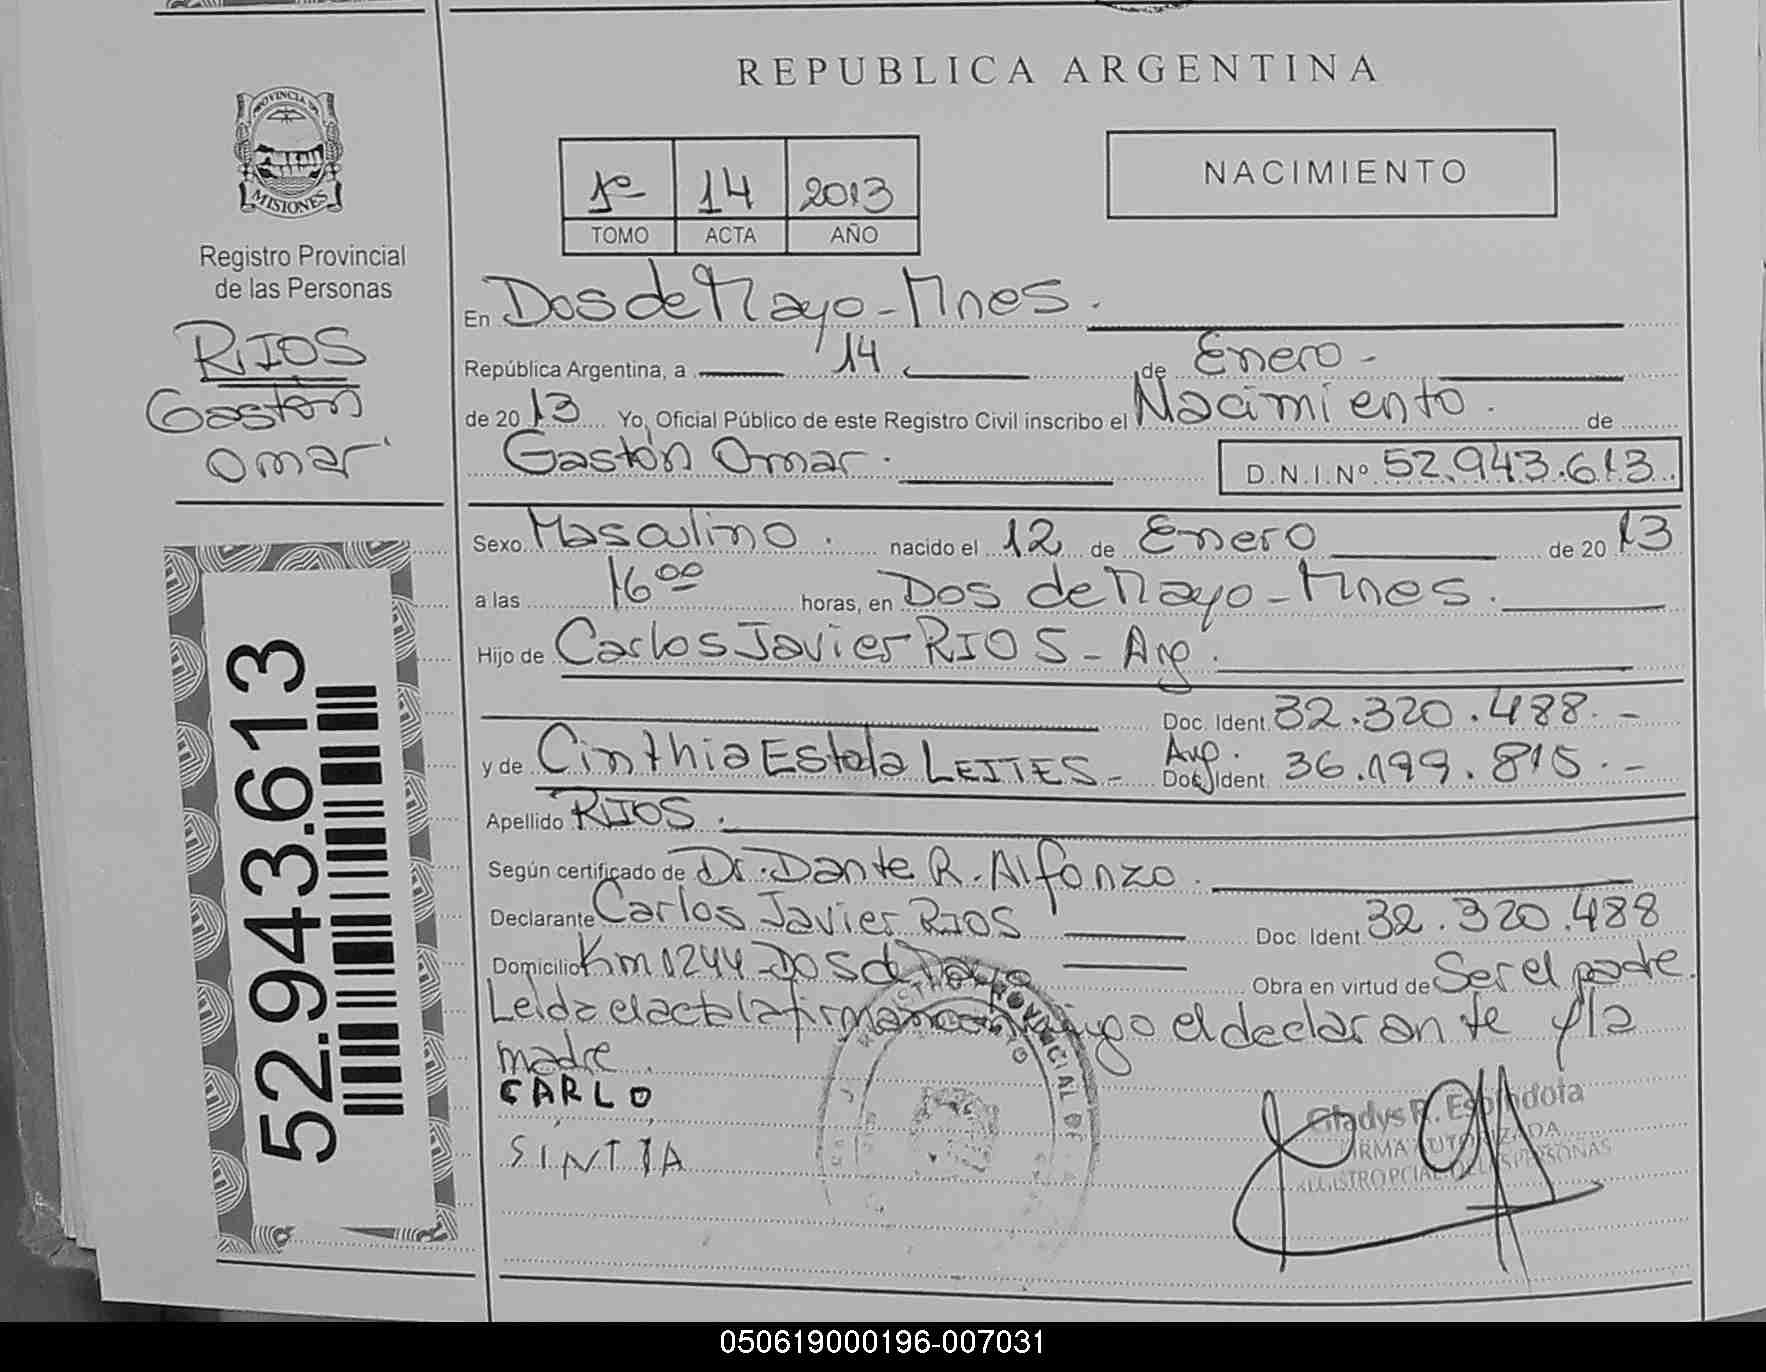 REPUBLICA ARGENTINA
PROVINCIA DE
MISIONES
Registro Provincial
de las Personas
RIOS
Gastón
Omar
52.943.613
1º 14 2013
TOMO ACTA AÑO
NACIMIENTO
En Dos de Mayo - Mnes.
República Argentina, a 14 de Enero -
de 2013 Yo, Oficial Público de este Registro Civil inscribo el Nacimiento. de
Gastón Omar. D.N.I.Nº 52.943.613
Sexo Masculino. nacido el 12 de Enero de 2013
a las 16 00 horas, en Dos de Mayo - Mnes.
Hijo de Carlos Javier RIOS - Arg.
Doc. Ident. 32.320.488.-
y de Cinthia Estela LEITES - Arg. Doc. Ident. 36.199.815.-
Apellido RIOS.
Según certificado de Dr. Dante R. Alfonzo.
Declarante Carlos Javier RIOS Doc. Ident. 32.320.488
Domicilio Km 1244 - Dos de Mayo Obra en virtud de Ser el padre.
Leída el acta la firman conmigo el declarante y la
madre.
CARLO
SINTIA
REGISTRO PROVINCIAL DE
Gladys R. Espindola
FIRMA AUTORIZADA
REGISTRO PCIAL. DE LAS PERSONAS
050619000196-007031